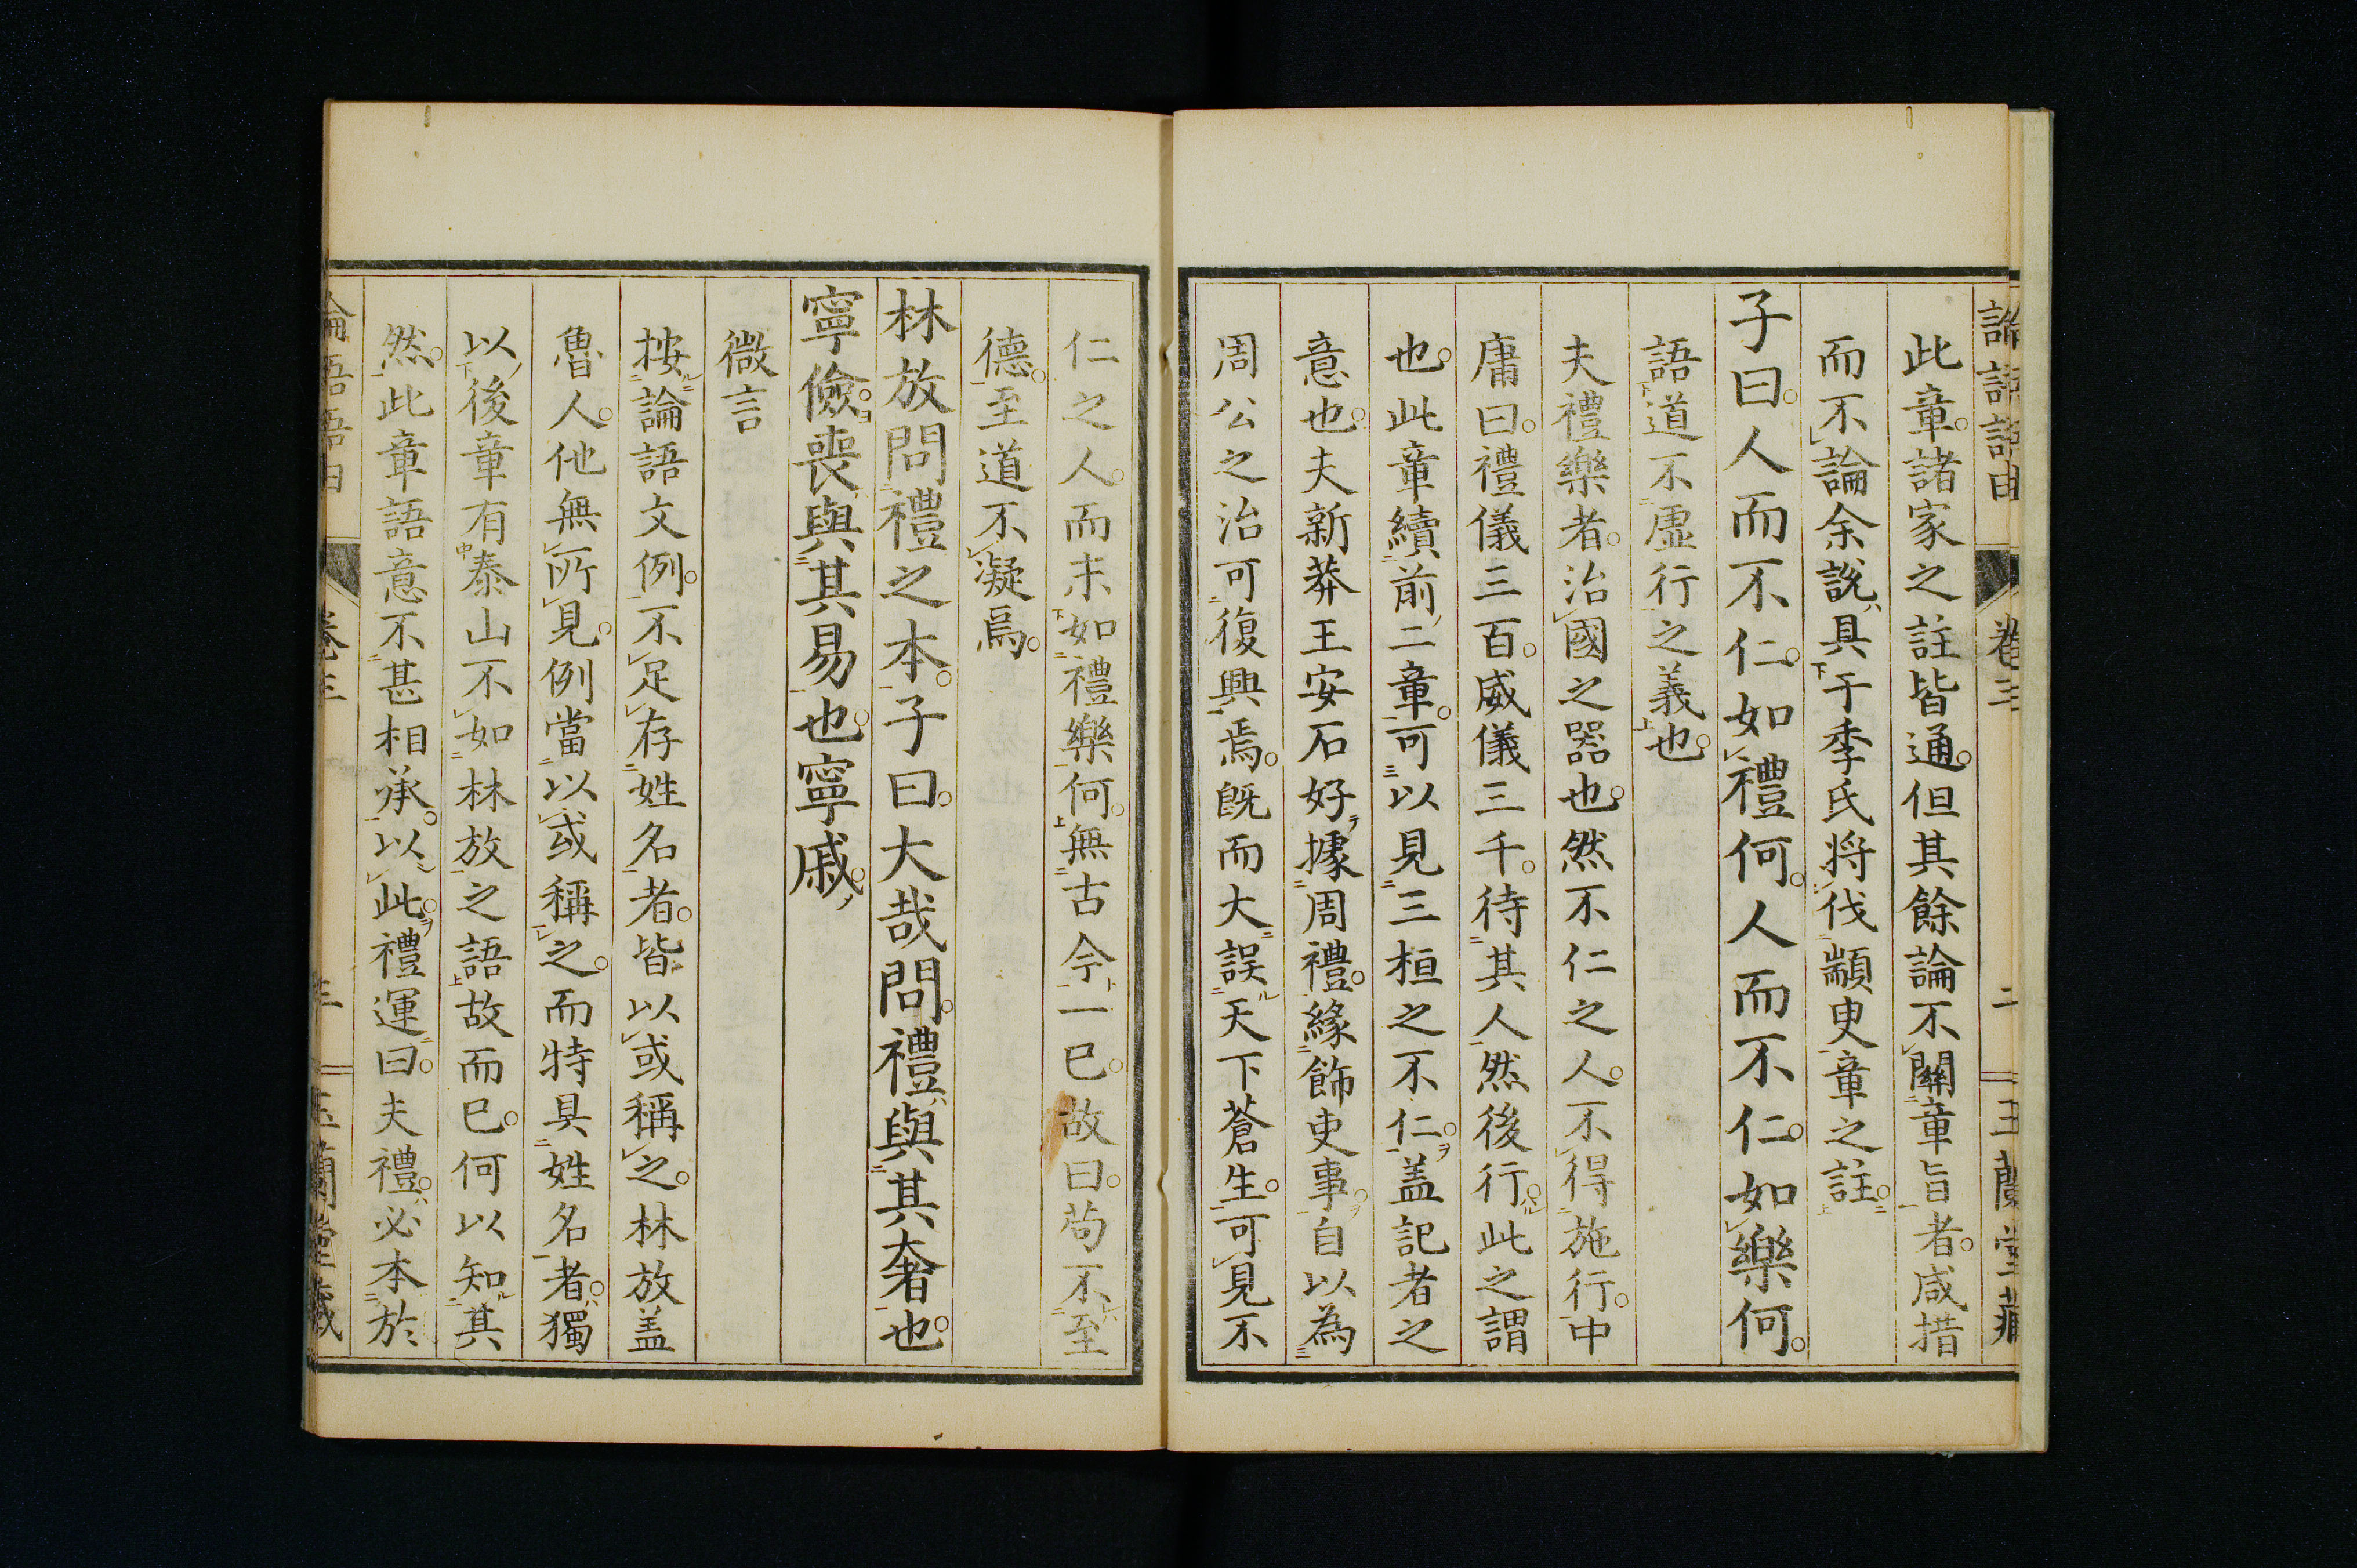 論語語由 卷三 二 玉蘭堂藏
此章。諸家之註皆通。但其餘論不關章旨者。咸措
而不論余說具于季氏將伐顓臾章之註。
子曰。人而不仁。如禮何。人而不仁。如樂何。
語道不虛行之義也。
夫禮樂者。治國之器也。然不仁之人。不得施行。中
庸曰。禮儀三百。威儀三千。待其人然後行。此之謂
也。此章續前二章。可以見三桓之不仁。盖記者之
意也。夫新莽王安石好據周禮。緣飾吏事。自以為
周公之治可復興焉。既而大誤天下蒼生。可見不
仁之人。而未如禮樂何。無古今一已。故曰。苟不至
德。至道不凝焉。
林放問禮之本。子曰。大哉問。禮與其奢也。
寧儉。喪與其易也。寧戚。
微言
按論語文例。不足存姓名者。皆以或稱之。林放盖
魯人。他無所見。例當以或稱之。而特具姓名者。獨
以後章有泰山不如林放之語故而已。何以知其
然。此章語意不甚相承。以此。禮運曰。夫禮。必本於
論語語由 卷三 三 玉蘭堂藏